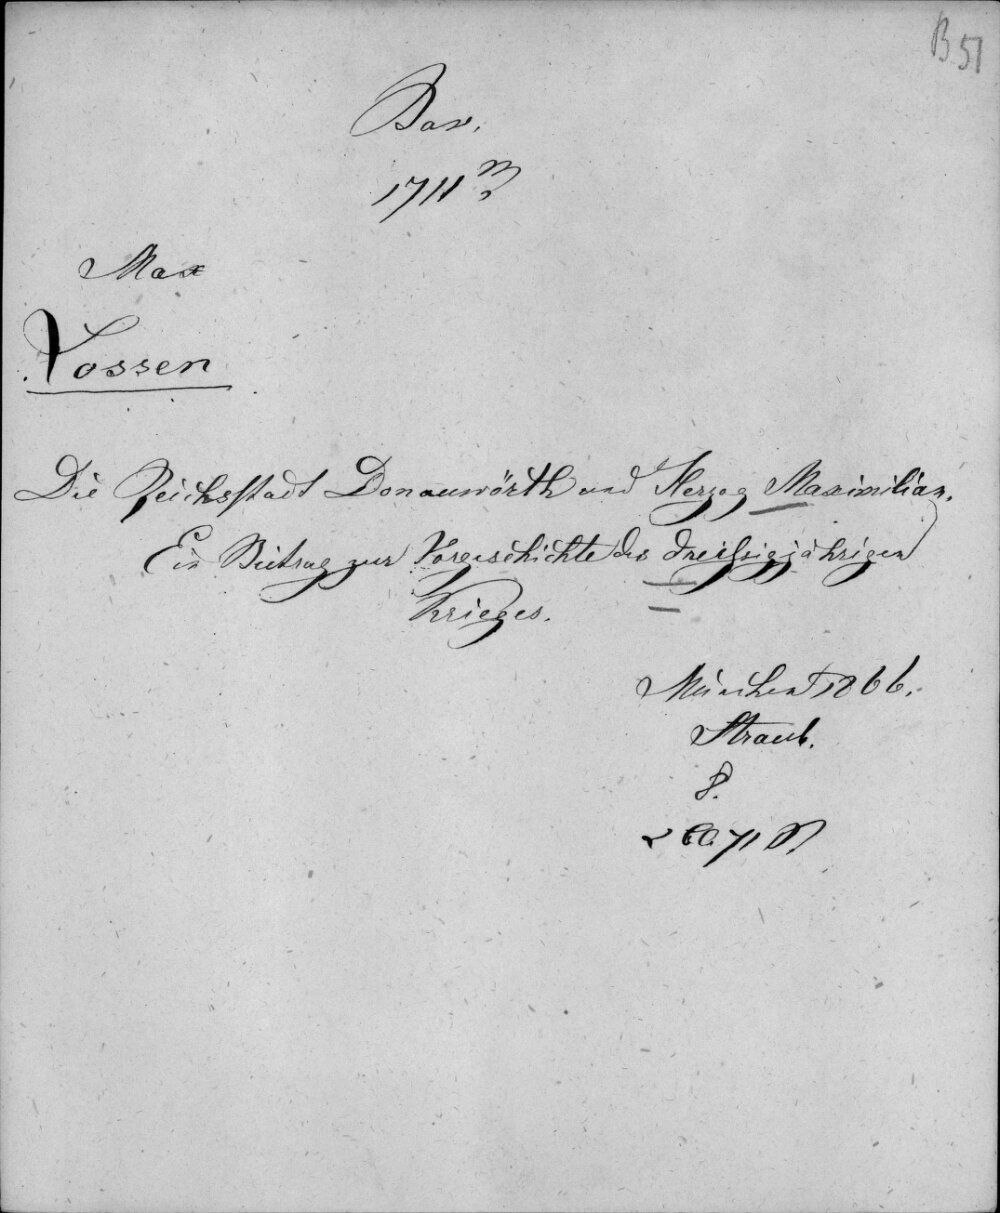 B 51
Bav.
1711 m
Max
Lossen
Die Reichsstadt Donauwörth und Herzog Maximilian.
Ein Beitrag zur Vorgeschichte des dreißigjährigen
Krieges.
München 1866.
Straub.
8.
71